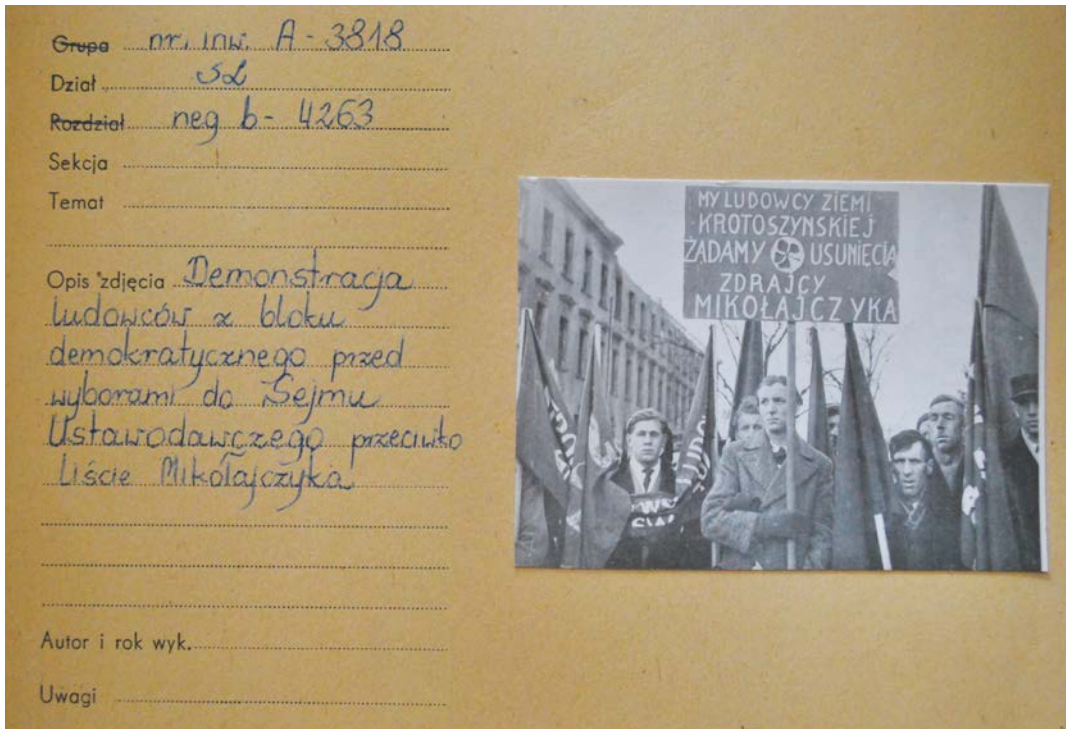 Grupa nr. inw. A - 3818
Dział SL
Rozdział neg b - 4263
Sekcja
Temat
Opis zdjęcia Demonstracja
ludowców z bloku
demokratycznego przed
wyborami do Sejmu
Ustawodawczego przeciwko
Liście Mikołajczyka
Autor i rok wyk.
Uwagi
MY LUDOWCY ZIEMI
KROTOSZYNSKIEJ
ŻADAMY USUNIĘCIA
ZDRAJCY
MIKOŁAJCZYKA